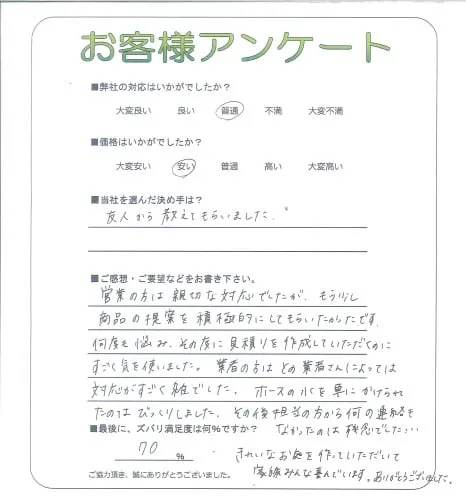 お客様アンケート
■弊社の対応はいかがでしたか？
大変良い 良い 普通 不満 大変不満
■価格はいかがでしたか？
大変安い 安い 普通 高い 大変高い
■当社を選んだ決め手は？
友人から教えてもらいました。
■ご感想・ご要望などをお書き下さい。
営業の方は親切な対応でしたが、もう少し
商品の提案を積極的にしてもらいたかったです。
何度も悩み、その度に見積りを作成していただくのに
すごく気を使いました。業者の方はどの業者さんによっては
対応がすごく雑でした。ホースの水を車にかけられ
たのはびっくりしました。その後担当の方から何の連絡も
なかったのは残念でした…
■最後に、ズバリ満足度は何％ですか？
70 %
きれいなお庭を作っていただいて
家族みんな喜んでいます。ありがとうございました。
ご協力頂き、誠にありがとうございました。